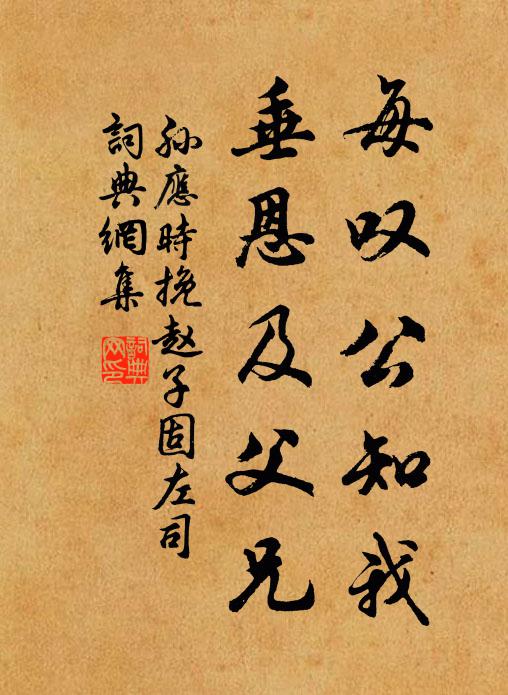 每叹公知我
垂恩及父兄
孙應時挽赵子固左司
詞典網集
詞典网印